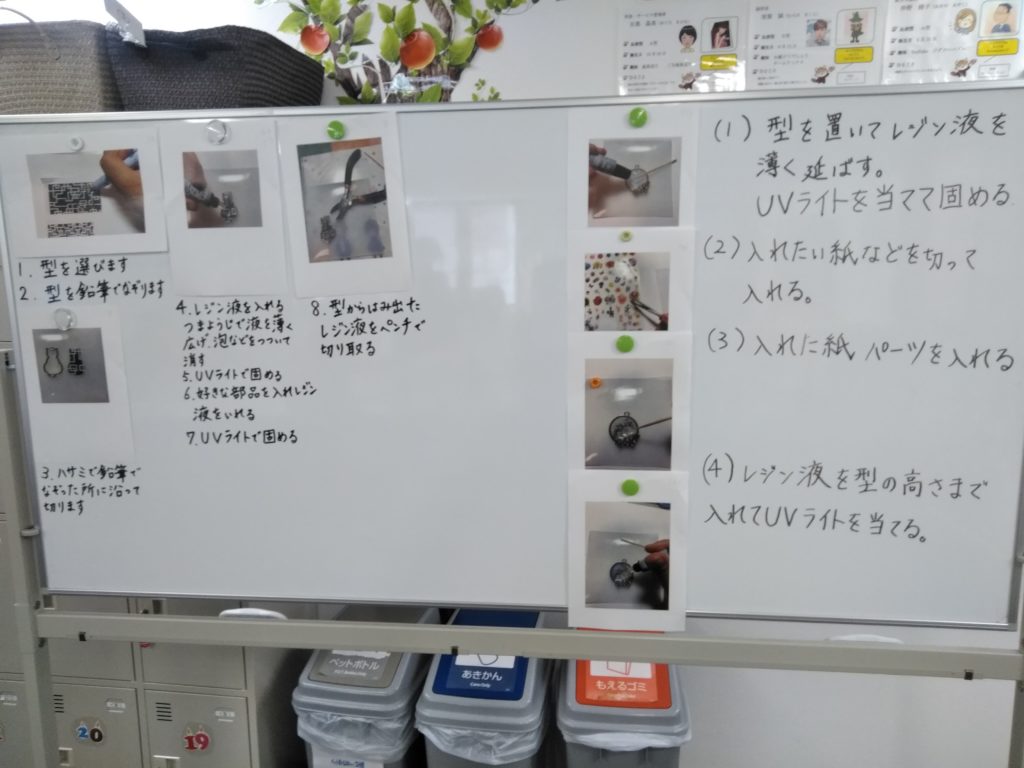 1. 型を選びます
2. 型を鉛筆でなぞります
3. ハサミで鉛筆で
なぞった所に沿って
切ります
4. レジン液を入れる
つまようじで液を薄く
広げ、泡などをつついて
消す
5. UVライトで固める
6. 好きな部品を入れレジン
液をいれる
7. UVライトで固める
8. 型からはみ出た
レジン液をペンチで
切り取る
(1) 型を置いてレジン液を
薄く延ばす。
UVライトを当てて固める
(2) 入れたい紙などを切って
入れる。
(3) 入れた紙 パーツを入れる
(4) レジン液を型の高さまで
入れてUVライトを当てる。
ペットボトル
あきかん
もえるゴミ
20
19